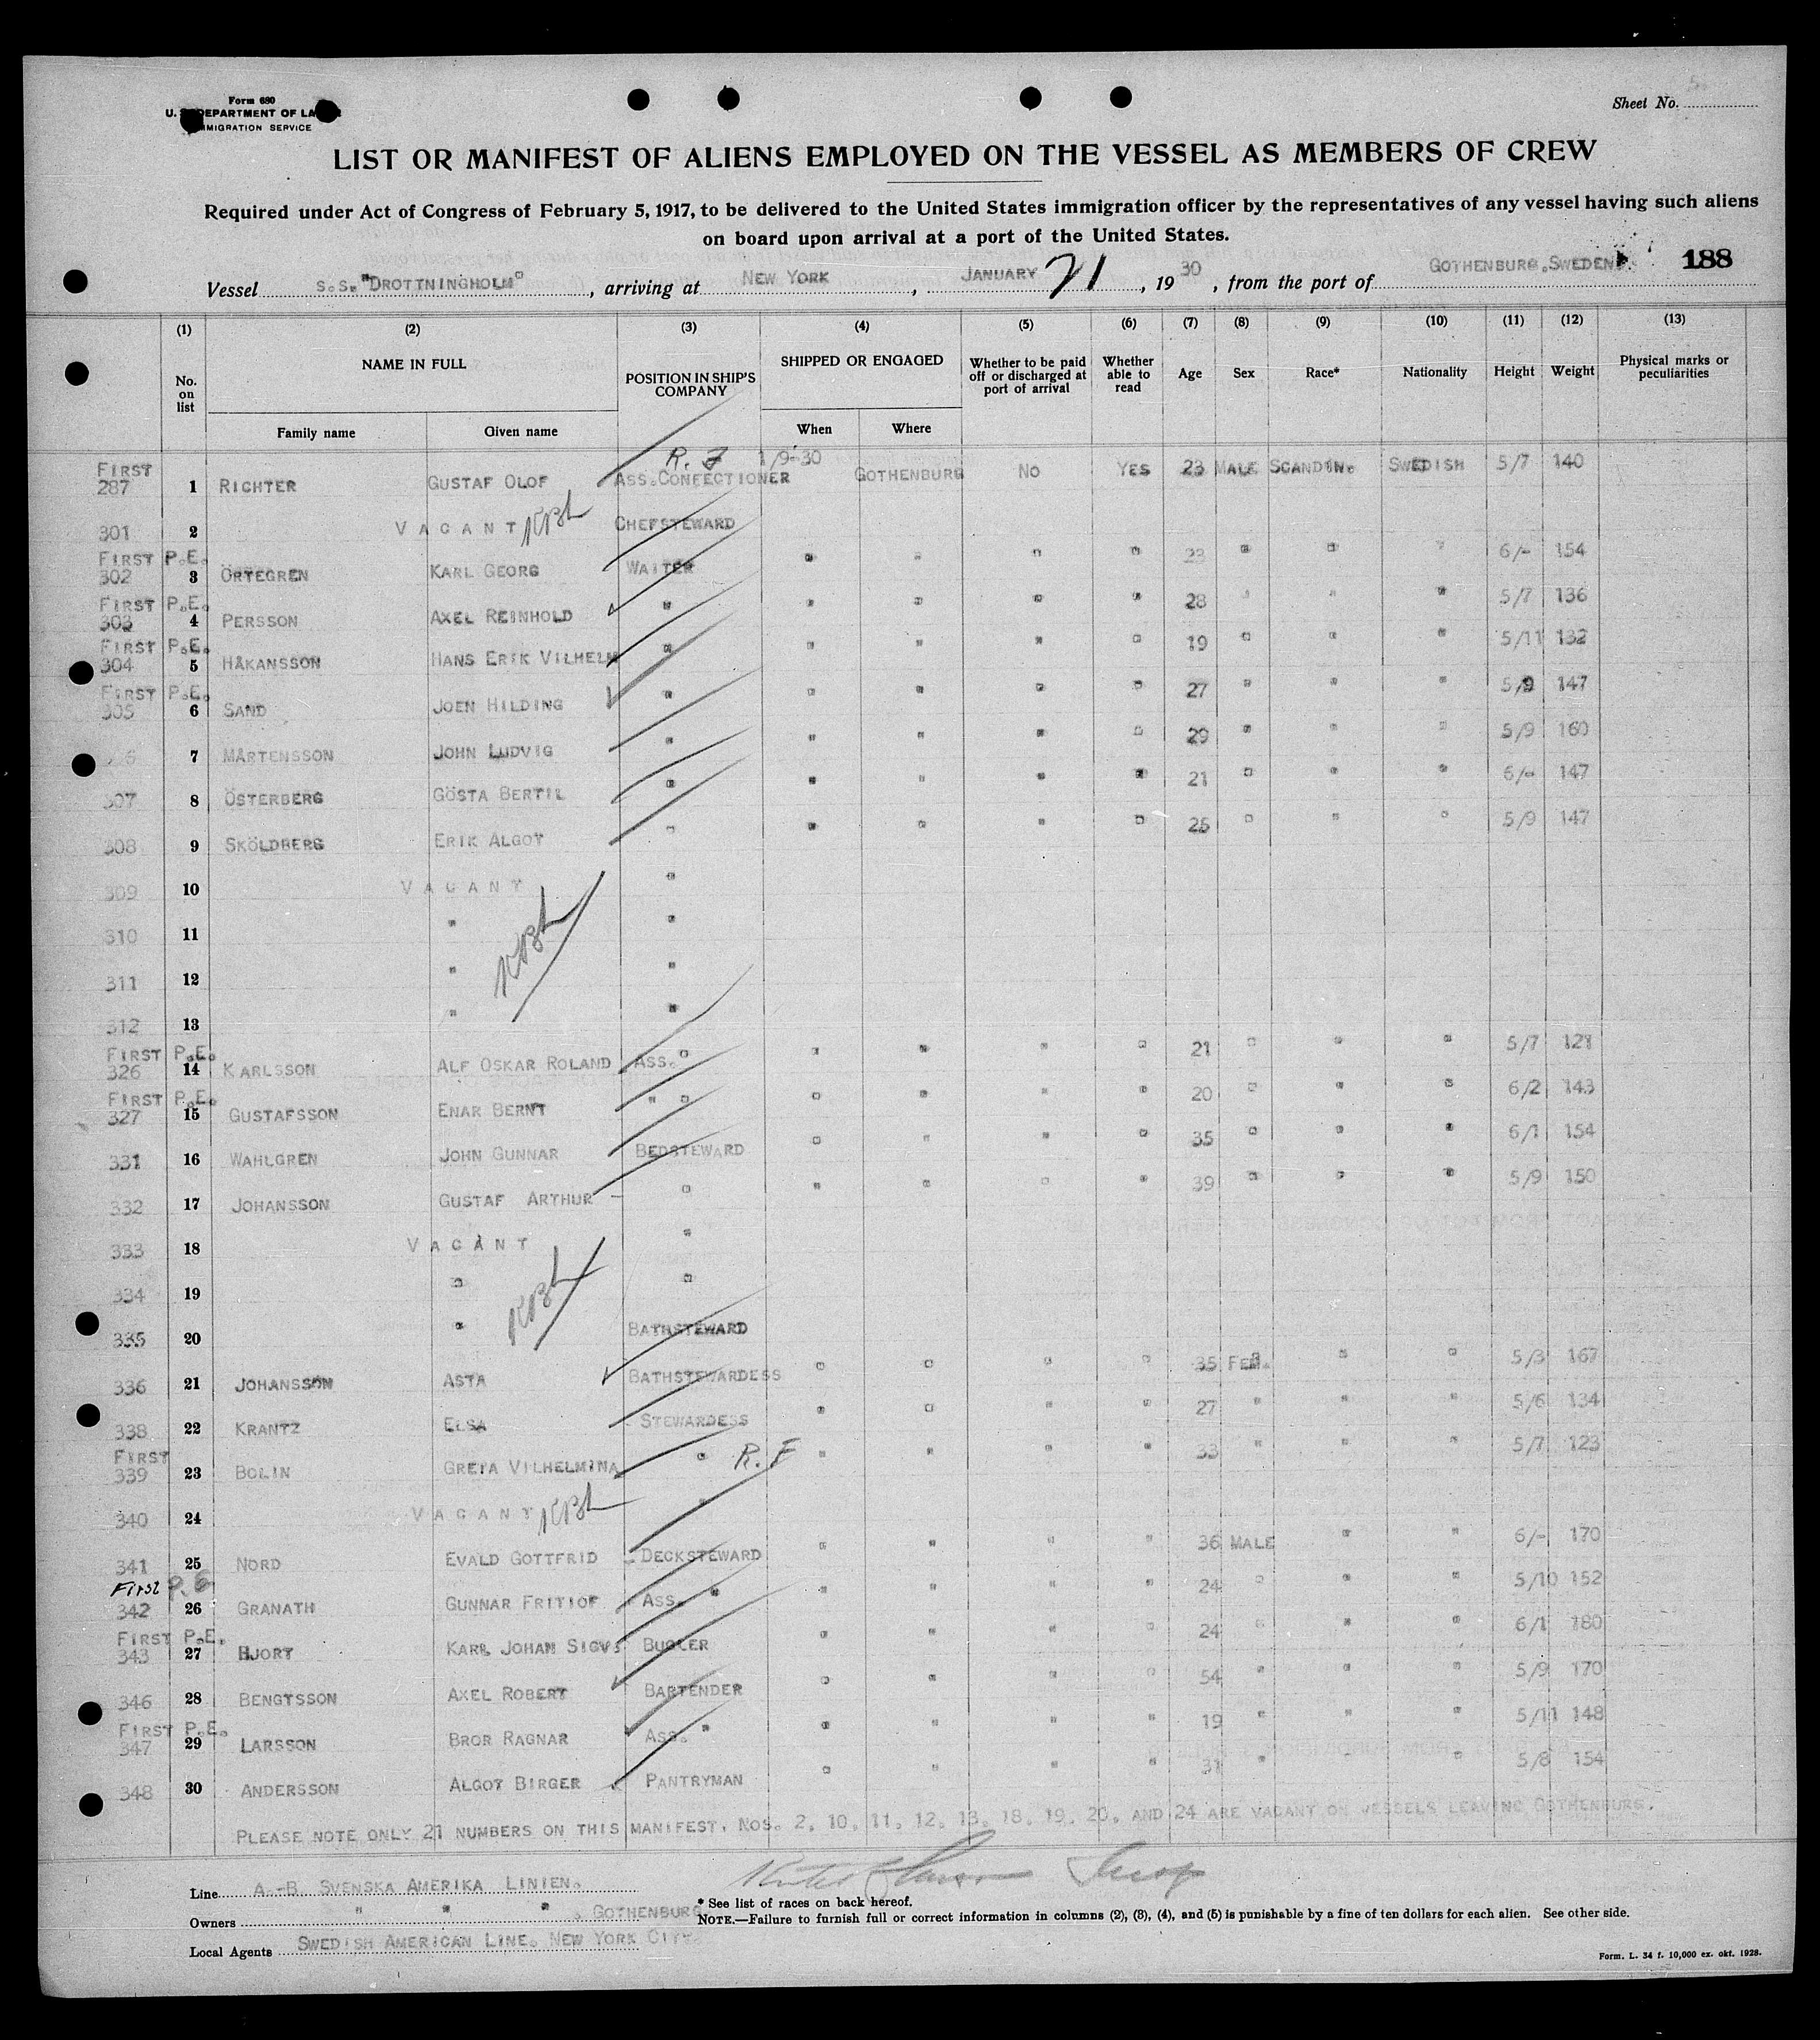 Form 680
U. S. DEPARTMENT OF LABOR
IMMIGRATION SERVICE
Sheet No.
LIST OR MANIFEST OF ALIENS EMPLOYED ON THE VESSEL AS MEMBERS OF CREW
Required under Act of Congress of February 5, 1917, to be delivered to the United States immigration officer by the representatives of any vessel having such aliens
on board upon arrival at a port of the United States.
188
Vessel S.S. "DROTTNINGHOLM", arriving at NEW YORK, JANUARY 21, 1930, from the port of GOTHENBURG, SWEDEN.
(1) (2) (3) (4) (5) (6) (7) (8) (9) (10) (11) (12) (13)
No. on list NAME IN FULL POSITION IN SHIP'S COMPANY SHIPPED OR ENGAGED Whether to be paid off or discharged at port of arrival Whether able to read Age Sex Race* Nationality Height Weight Physical marks or peculiarities
Family name Given name When Where
FIRST R. F 1/9-30
287 1 RICHTER GUSTAF OLOF ASS.CONFECTIONER GOTHENBURG NO YES 23 MALE SCANDIN. SWEDISH 5/7 140
301 2 VACANT KBL CHEFSTEWARD
FIRST P.E.
302 3 ÖRTEGREN KARL GEORG WAITER " " " " 23 " " " 6/- 154
FIRST P.E.
303 4 PERSSON AXEL REINHOLD " " " " " 28 " " " 5/7 136
FIRST P.E.
304 5 HÅKANSSON HANS ERIK VILHELM " " " " " 19 " " " 5/11 132
FIRST P.E.
305 6 SAND JOEN HILDING " " " " " 27 " " " 5/9 147
7 MÅRTENSSON JOHN LUDVIG " " " " " 29 " " " 5/9 160
307 8 ÖSTERBERG GÖSTA BERTIL " " " " " 21 " " " 6/- 147
308 9 SKÖLDBERG ERIK ALGOT " " " " " 25 " " " 5/9 147
309 10 VACANT "
310 11 " KBL "
311 12 " "
312 13 " "
FIRST P.E.
326 14 KARLSSON ALF OSKAR ROLAND ASS. " " " " " 21 " " " 5/7 121
FIRST P.E.
327 15 GUSTAFSSON ENAR BERNT " " " " " " 20 " " " 6/2 143
331 16 WAHLGREN JOHN GUNNAR BEDSTEWARD " " " " 35 " " " 6/1 154
332 17 JOHANSSON GUSTAF ARTHUR " " " " " 39 " " " 5/9 150
333 18 VACANT "
334 19 " KBL "
335 20 " BATHSTEWARD
336 21 JOHANSSON ASTA BATHSTEWARDESS " " " " 35 FEM. " " 5/3 167
338 22 KRANTZ ELSA STEWARDESS " " " " 27 " " " 5/6 134
FIRST
339 23 BOLIN GRETA VILHELMINA " R. F " " " " 33 " " " 5/7 123
340 24 VACANT KBL "
341 25 NORD EVALD GOTTFRID DECKSTEWARD " " " " 36 MALE " " 6/- 170
First P.E
342 26 GRANATH GUNNAR FRITIOF ASS. " " " " " 24 " " " 5/10 152
FIRST P.E.
343 27 HJORT KARL JOHAN SIGVS BUGLER " " " " 24 " " " 6/1 180
346 28 BENGTSSON AXEL ROBERT BARTENDER " " " " 54 " " " 5/9 170
FIRST P.E.
347 29 LARSSON BROR RAGNAR ASS. " " " " " 19 " " " 5/11 148
348 30 ANDERSSON ALGOT BIRGER PANTRYMAN " " " " 31 " " " 5/8 154
PLEASE NOTE ONLY 21 NUMBERS ON THIS MANIFEST, NOS. 2, 10, 11, 12, 13, 18, 19, 20, AND 24 ARE VACANT ON VESSELS LEAVING GOTHENBURG.
Line A.-B. SVENSKA AMERIKA LINIEN.
Owners " " ", GOTHENBURG
Local Agents SWEDISH AMERICAN LINE, NEW YORK CITY.
* See list of races on back hereof.
NOTE.—Failure to furnish full or correct information in columns (2), (3), (4), and (5) is punishable by a fine of ten dollars for each alien. See other side.
Form. L. 34 f. 10,000 ex. okt. 1928.